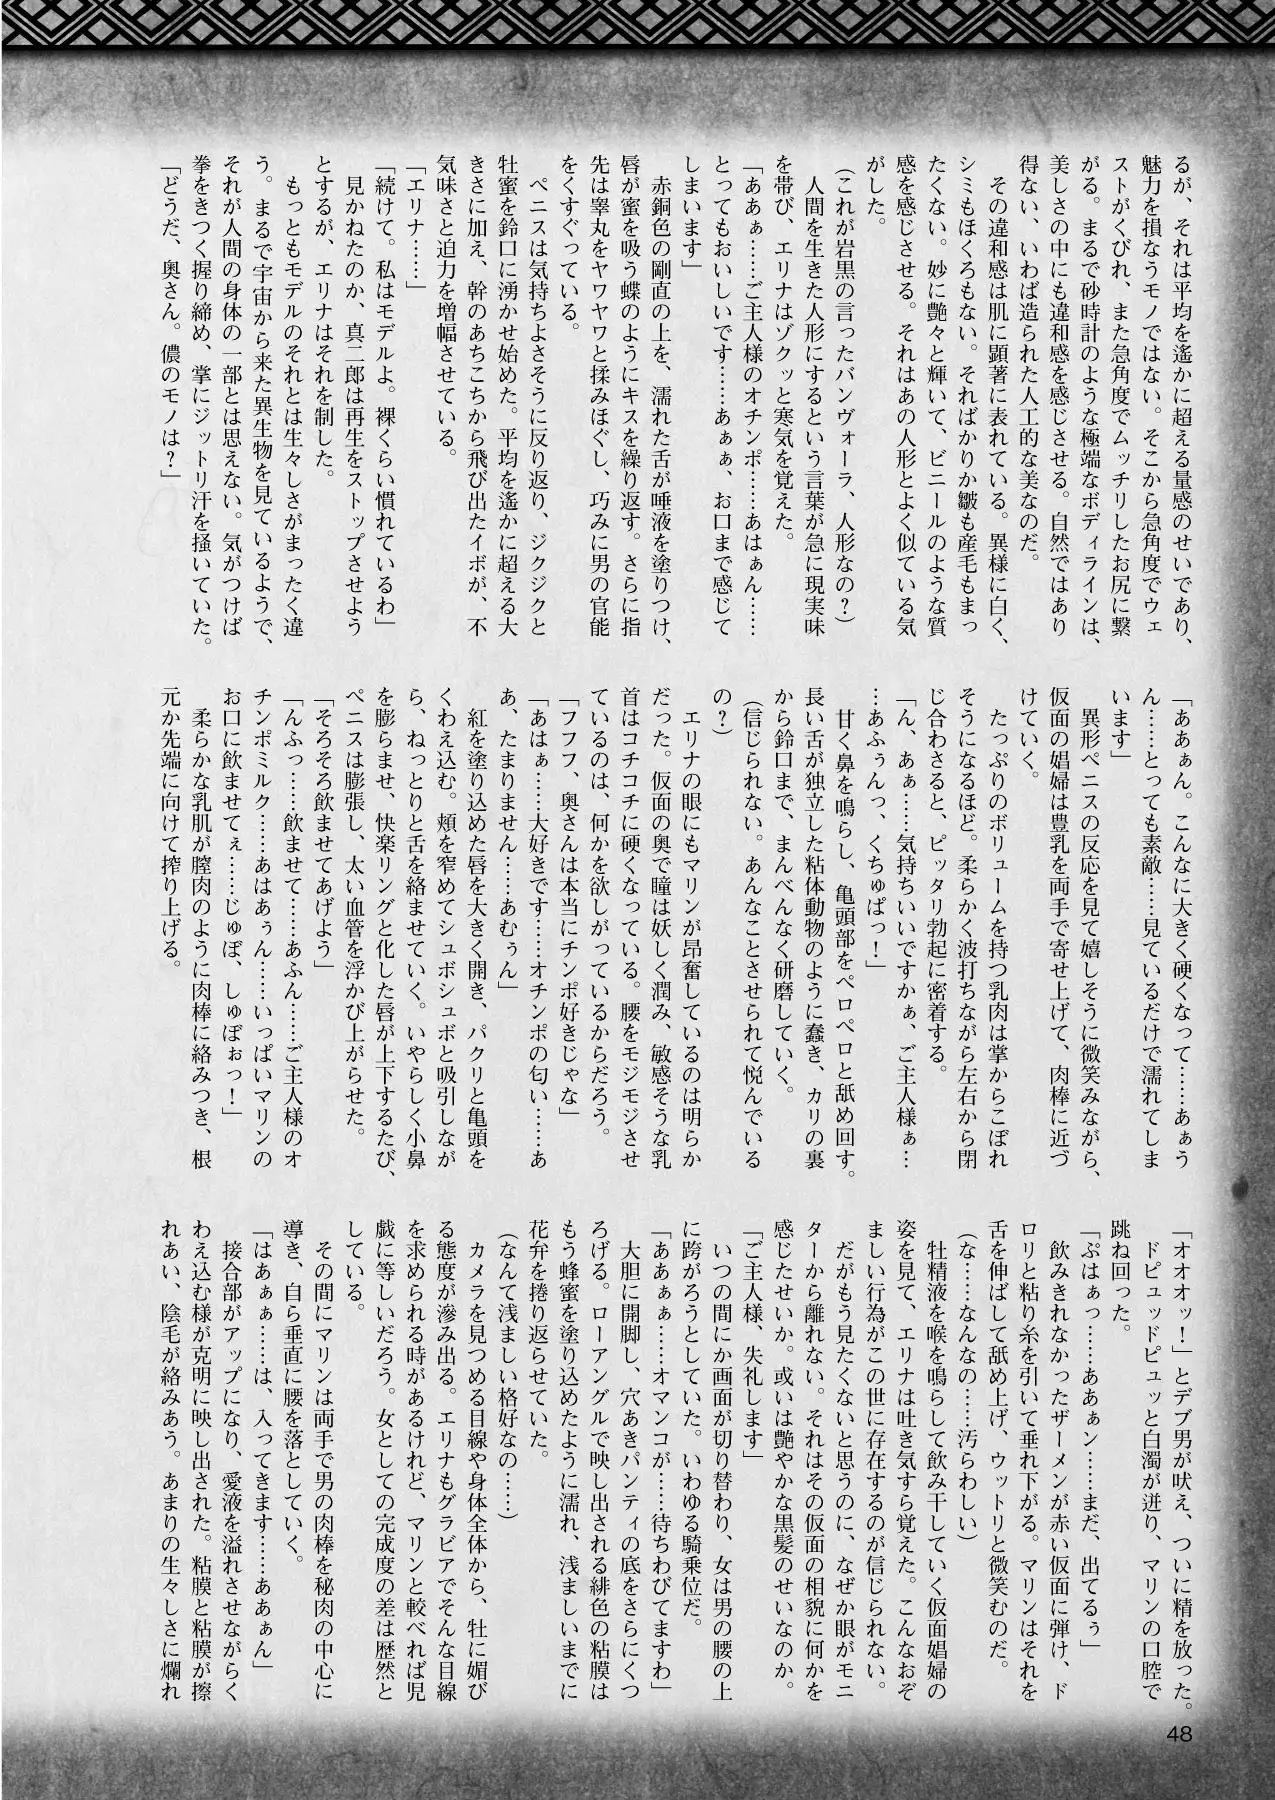 るが、それは平均を遙かに超える量感のせいであり、
魅力を損なうモノではない。そこから急角度でウェ
ストがくびれ、また急角度でムッチリしたお尻に繋
がる。まるで砂時計のような極端なボディラインは、
美しさの中にも違和感を感じさせる。自然ではあり
得ない、いわば造られた人工的な美なのだ。
その違和感は肌に顕著に表れている。異様に白く、
シミもほくろもない。そればかりか皺も産毛もまっ
たくない。妙に艶々と輝いて、ビニールのような質
感を感じさせる。それはあの人形とよく似ている気
がした。
(これが岩黒の言ったバンヴォーラ、人形なの?)
人間を生きた人形にするという言葉が急に現実味
を帯び、エリナはゾクッと寒気を覚えた。
「ああぁ……ご主人様のオチンポ……あはぁん……
とってもおいしいです……あぁぁ、お口まで感じて
しまいます」
赤銅色の剛直の上を、濡れた舌が唾液を塗りつけ、
唇が蜜を吸う蝶のようにキスを繰り返す。さらに指
先は睾丸をヤワヤワと揉みほぐし、巧みに男の官能
をくすぐっている。
ペニスは気持ちよさそうに反り返り、ジクジクと
牡蜜を鈴口に湧かせ始めた。平均を遙かに超える大
きさに加え、幹のあちこちから飛び出たイボが、不
気味さと迫力を増幅させている。
「エリナ……」
「続けて。私はモデルよ。裸くらい慣れているわ」
見かねたのか、真二郎は再生をストップさせよう
とするが、エリナはそれを制した。
もっともモデルのそれとは生々しさがまったく違
う。まるで宇宙から来た異生物を見ているようで、
それが人間の身体の一部とは思えない。気がつけば
拳をきつく握り締め、掌にジットリ汗を掻いていた。
「どうだ、奥さん。儂のモノは?」
「ああぁん。こんなに大きく硬くなって……あぁう
ん……とっても素敵……見ているだけで濡れてしま
います」
異形ペニスの反応を見て嬉しそうに微笑みながら、
仮面の娼婦は豊乳を両手で寄せ上げて、肉棒に近づ
けていく。
たっぷりのボリュームを持つ乳肉は掌からこぼれ
そうになるほど。柔らかく波打ちながら左右から閉
じ合わさると、ピッタリ勃起に密着する。
「ん、あぁ……気持ちいいですかぁ、ご主人様ぁ…
…あふぅんっ、くちゅぱっ!」
甘く鼻を鳴らし、亀頭部をペロペロと舐め回す。
長い舌が独立した粘体動物のように蠢き、カリの裏
から鈴口まで、まんべんなく研磨していく。
(信じられない。あんなことさせられて悦んでいる
の?)
エリナの眼にもマリンが昂奮しているのは明らか
だった。仮面の奥で瞳は妖しく潤み、敏感そうな乳
首はコチコチに硬くなっている。腰をモジモジさせ
ているのは、何かを欲しがっているからだろう。
「フフフ、奥さんは本当にチンポ好きじゃな」
「あはぁ……大好きです……オチンポの匂い……あ
あ、たまりません……あむぅん」
紅を塗り込めた唇を大きく開き、パクリと亀頭を
くわえ込む。頬を窄めてシュボシュボと吸引しなが
ら、ねっとりと舌を絡ませていく。いやらしく小鼻
を膨らませ、快楽リングと化した唇が上下するたび、
ペニスは膨張し、太い血管を浮かび上がらせた。
「そろそろ飲ませてあげよう」
「んふっ……飲ませて……あふん……ご主人様のオ
チンポミルク……あはあぅん……いっぱいマリンの
お口に飲ませてぇ……じゅぼ、しゅぼぉっ!」
柔らかな乳肌が膣肉のように肉棒に絡みつき、根
元か先端に向けて搾り上げる。
「オオオッ!」とデブ男が吠え、ついに精を放った。
ドピュッドピュッと白濁が迸り、マリンの口腔で
跳ね回った。
「ぷはぁっ……ああぁン……まだ、出てるぅ」
飲みきれなかったザーメンが赤い仮面に弾け、ド
ロリと粘り糸を引いて垂れ下がる。マリンはそれを
舌を伸ばして舐め上げ、ウットリと微笑むのだ。
(な……なんなの……汚らわしい)
牡精液を喉を鳴らして飲み干していく仮面娼婦の
姿を見て、エリナは吐き気すら覚えた。こんなおぞ
ましい行為がこの世に存在するのが信じられない。
だがもう見たくないと思うのに、なぜか眼がモニ
ターから離れない。それはその仮面の相貌に何かを
感じたせいか。或いは艶やかな黒髪のせいなのか。
「ご主人様、失礼します」
いつの間にか画面が切り替わり、女は男の腰の上
に跨がろうとしていた。いわゆる騎乗位だ。
「ああぁぁ……オマンコが……待ちわびてますわ」
大胆に開脚し、穴あきパンティの底をさらにくつ
ろげる。ローアングルで映し出される緋色の粘膜は
もう蜂蜜を塗り込めたように濡れ、浅ましいまでに
花弁を捲り返らせていた。
(なんて浅ましい格好なの……)
カメラを見つめる目線や身体全体から、牡に媚び
る態度が滲み出る。エリナもグラビアでそんな目線
を求められる時があるけれど、マリンと較べれば児
戯に等しいだろう。女としての完成度の差は歴然と
している。
その間にマリンは両手で男の肉棒を秘肉の中心に
導き、自ら垂直に腰を落としていく。
「はあぁぁ……は、入ってきます……ああぁん」
接合部がアップになり、愛液を溢れさせながらく
わえ込む様が克明に映し出された。粘膜と粘膜が擦
れあい、陰毛が絡みあう。あまりの生々しさに爛れ
48